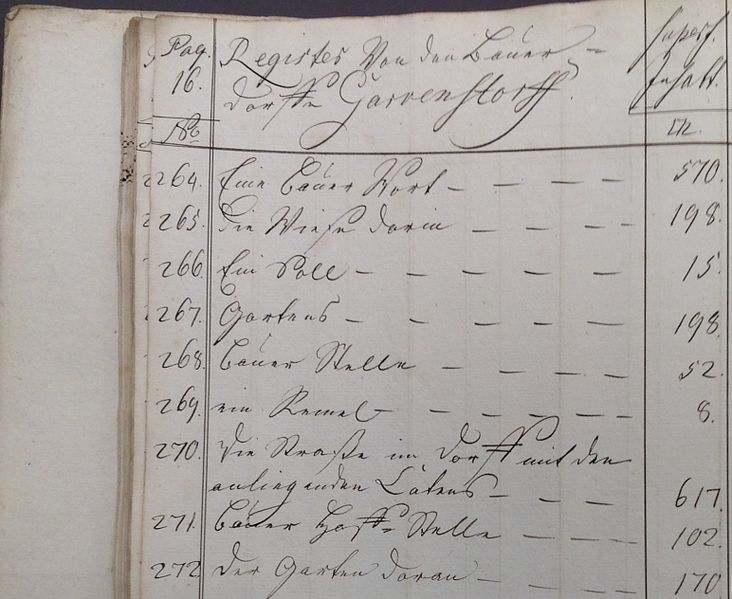 Pag. Register Von den Bauer- Supert.
16. dorffe Garvenstorff. Inhalt.
No. □R.
264. Eine Bauer Wort - - - - 570.
265. Die Wiese darin - - - - 198.
266. Ein Soll - - - - - 15.
267. Gartens - - - - - 198.
268. Bauer Stelle - - - - 52.
269. ein Remel - - - - - 8.
270. Die Straße im Dorff mit den
anliegenden Cätens - - - 617.
271. Bauer Hoff-Stelle - - - 102.
272. Der Garten daran - - - 170